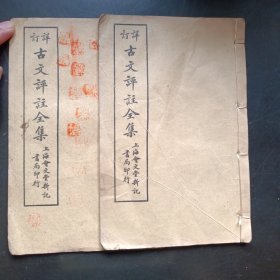 詳訂
古文評註全集
上海會文堂新記
書局印行
詳訂
古文評註全集
上海會文堂新記
書局印行